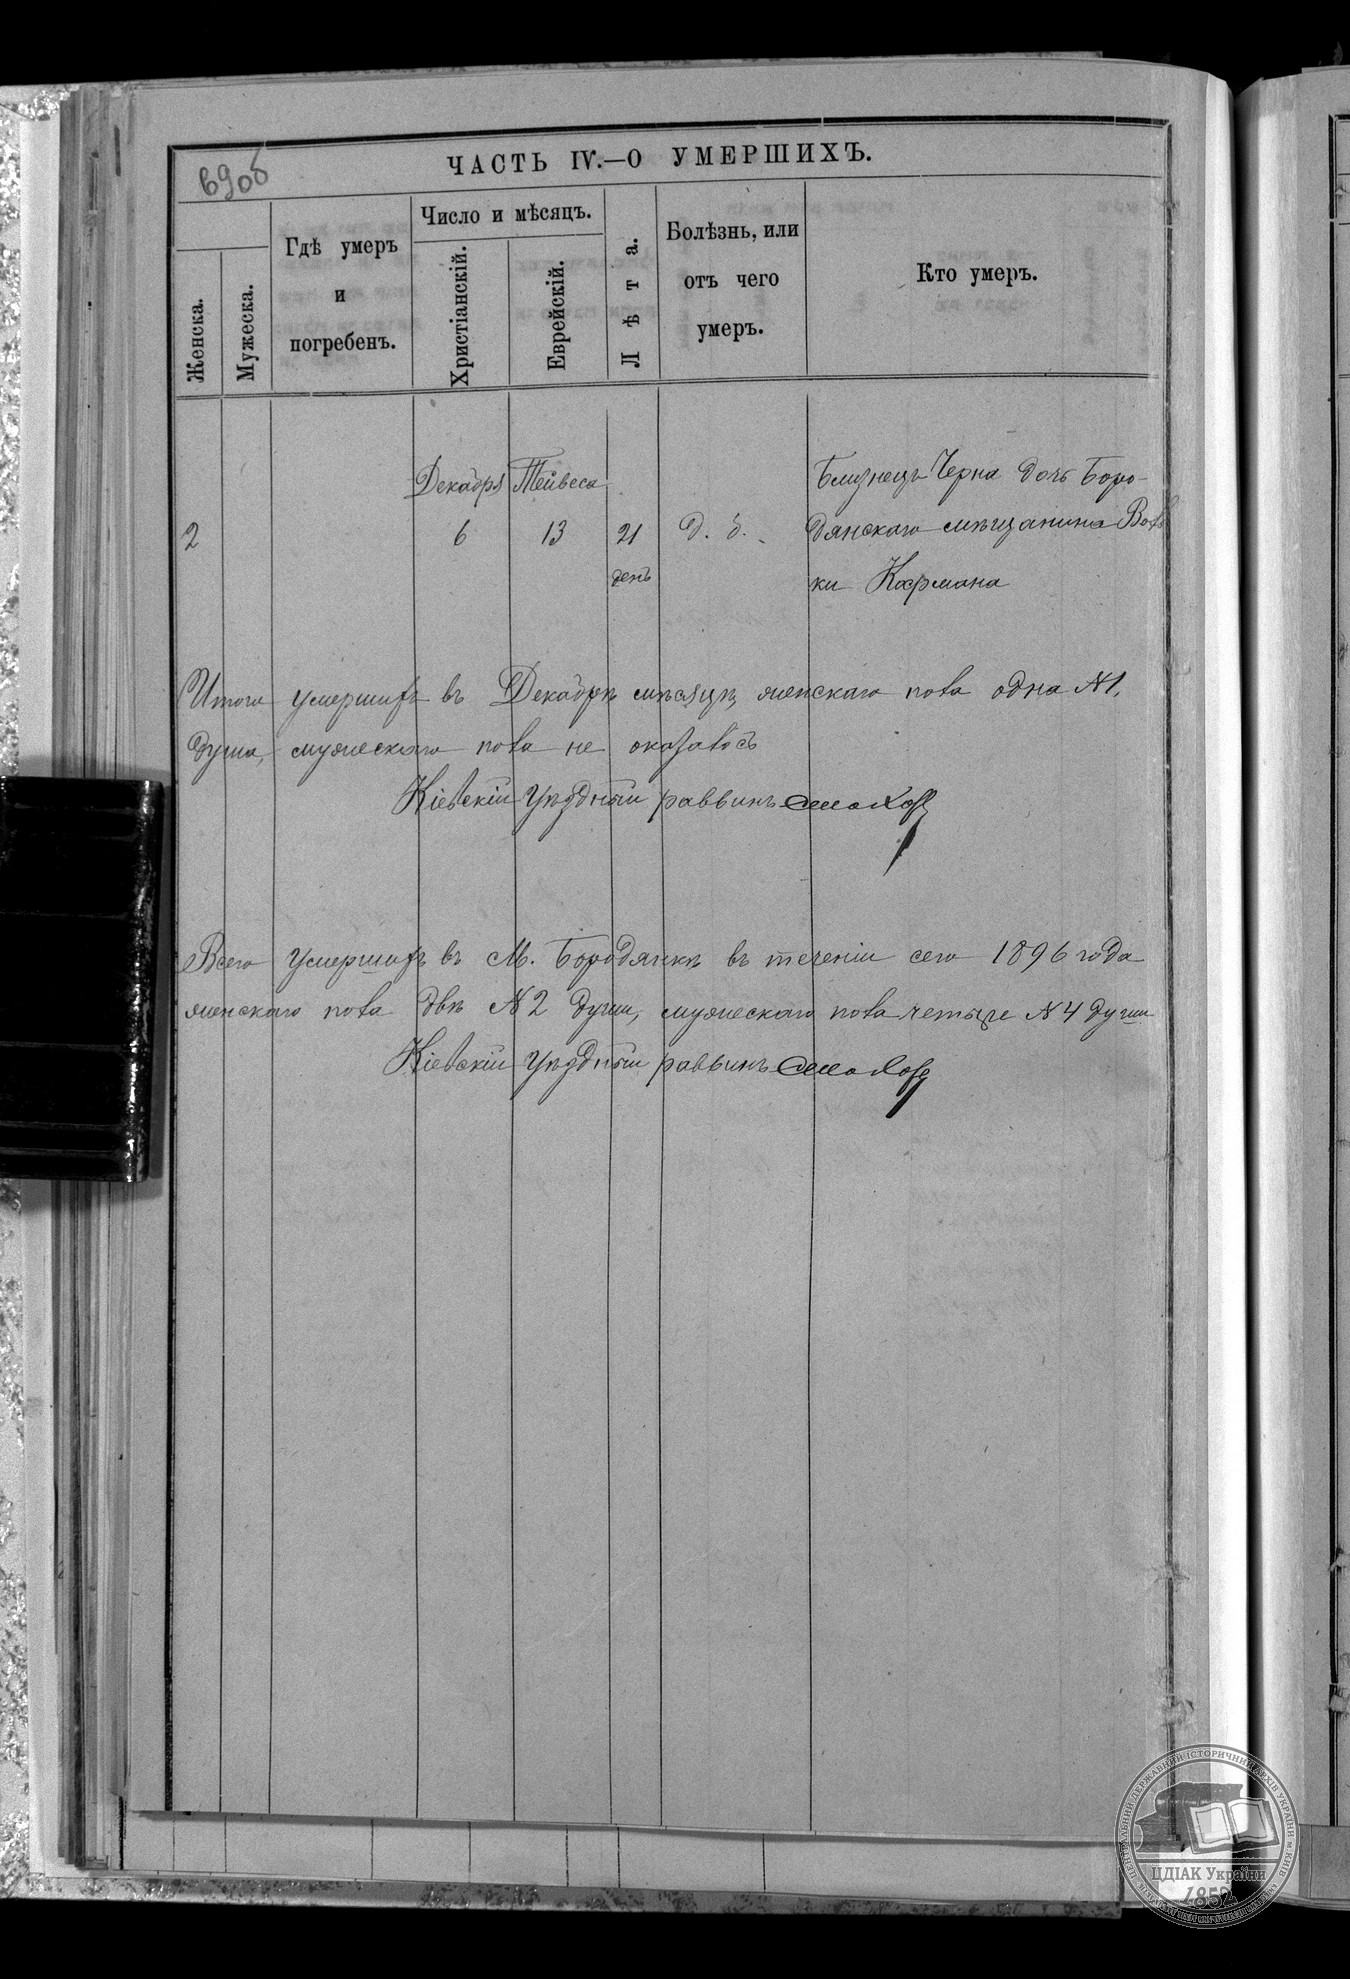 690б
ЧАСТЬ IV.—О УМЕРШИХЪ.
Женска.
Мужеска.
Гдѣ умеръ
и
погребенъ.
Число и мѣсяцъ.
Христіанскій.
Еврейскій.
Лѣта.
Болѣзнь, или
отъ чего
умеръ.
Кто умеръ.
Декабря Тейвеса
2 6 13 21 д. б.
день
Близнецъ Черна дочь Боро-
дянскаго мѣщанина Вол
ки Кармана
Итого умершихъ въ Декабрѣ мѣсяцѣ женскаго пола одна №1,
душа, мужескаго пола не оказалось
Кіевскій Уѣздный раввинъ
Всего умершихъ въ М. Бородянкѣ въ теченіи сего 1896 года
женскаго пола двѣ №2 души, мужескаго пола четыре №4 души
Кіевскій Уѣздный раввинъ
ЦЕНТРАЛЬНИЙ ДЕРЖАВНИЙ ІСТОРИЧНИЙ АРХІВ УКРАЇНИ м.КИЇВ
ЦДІАК України
1852